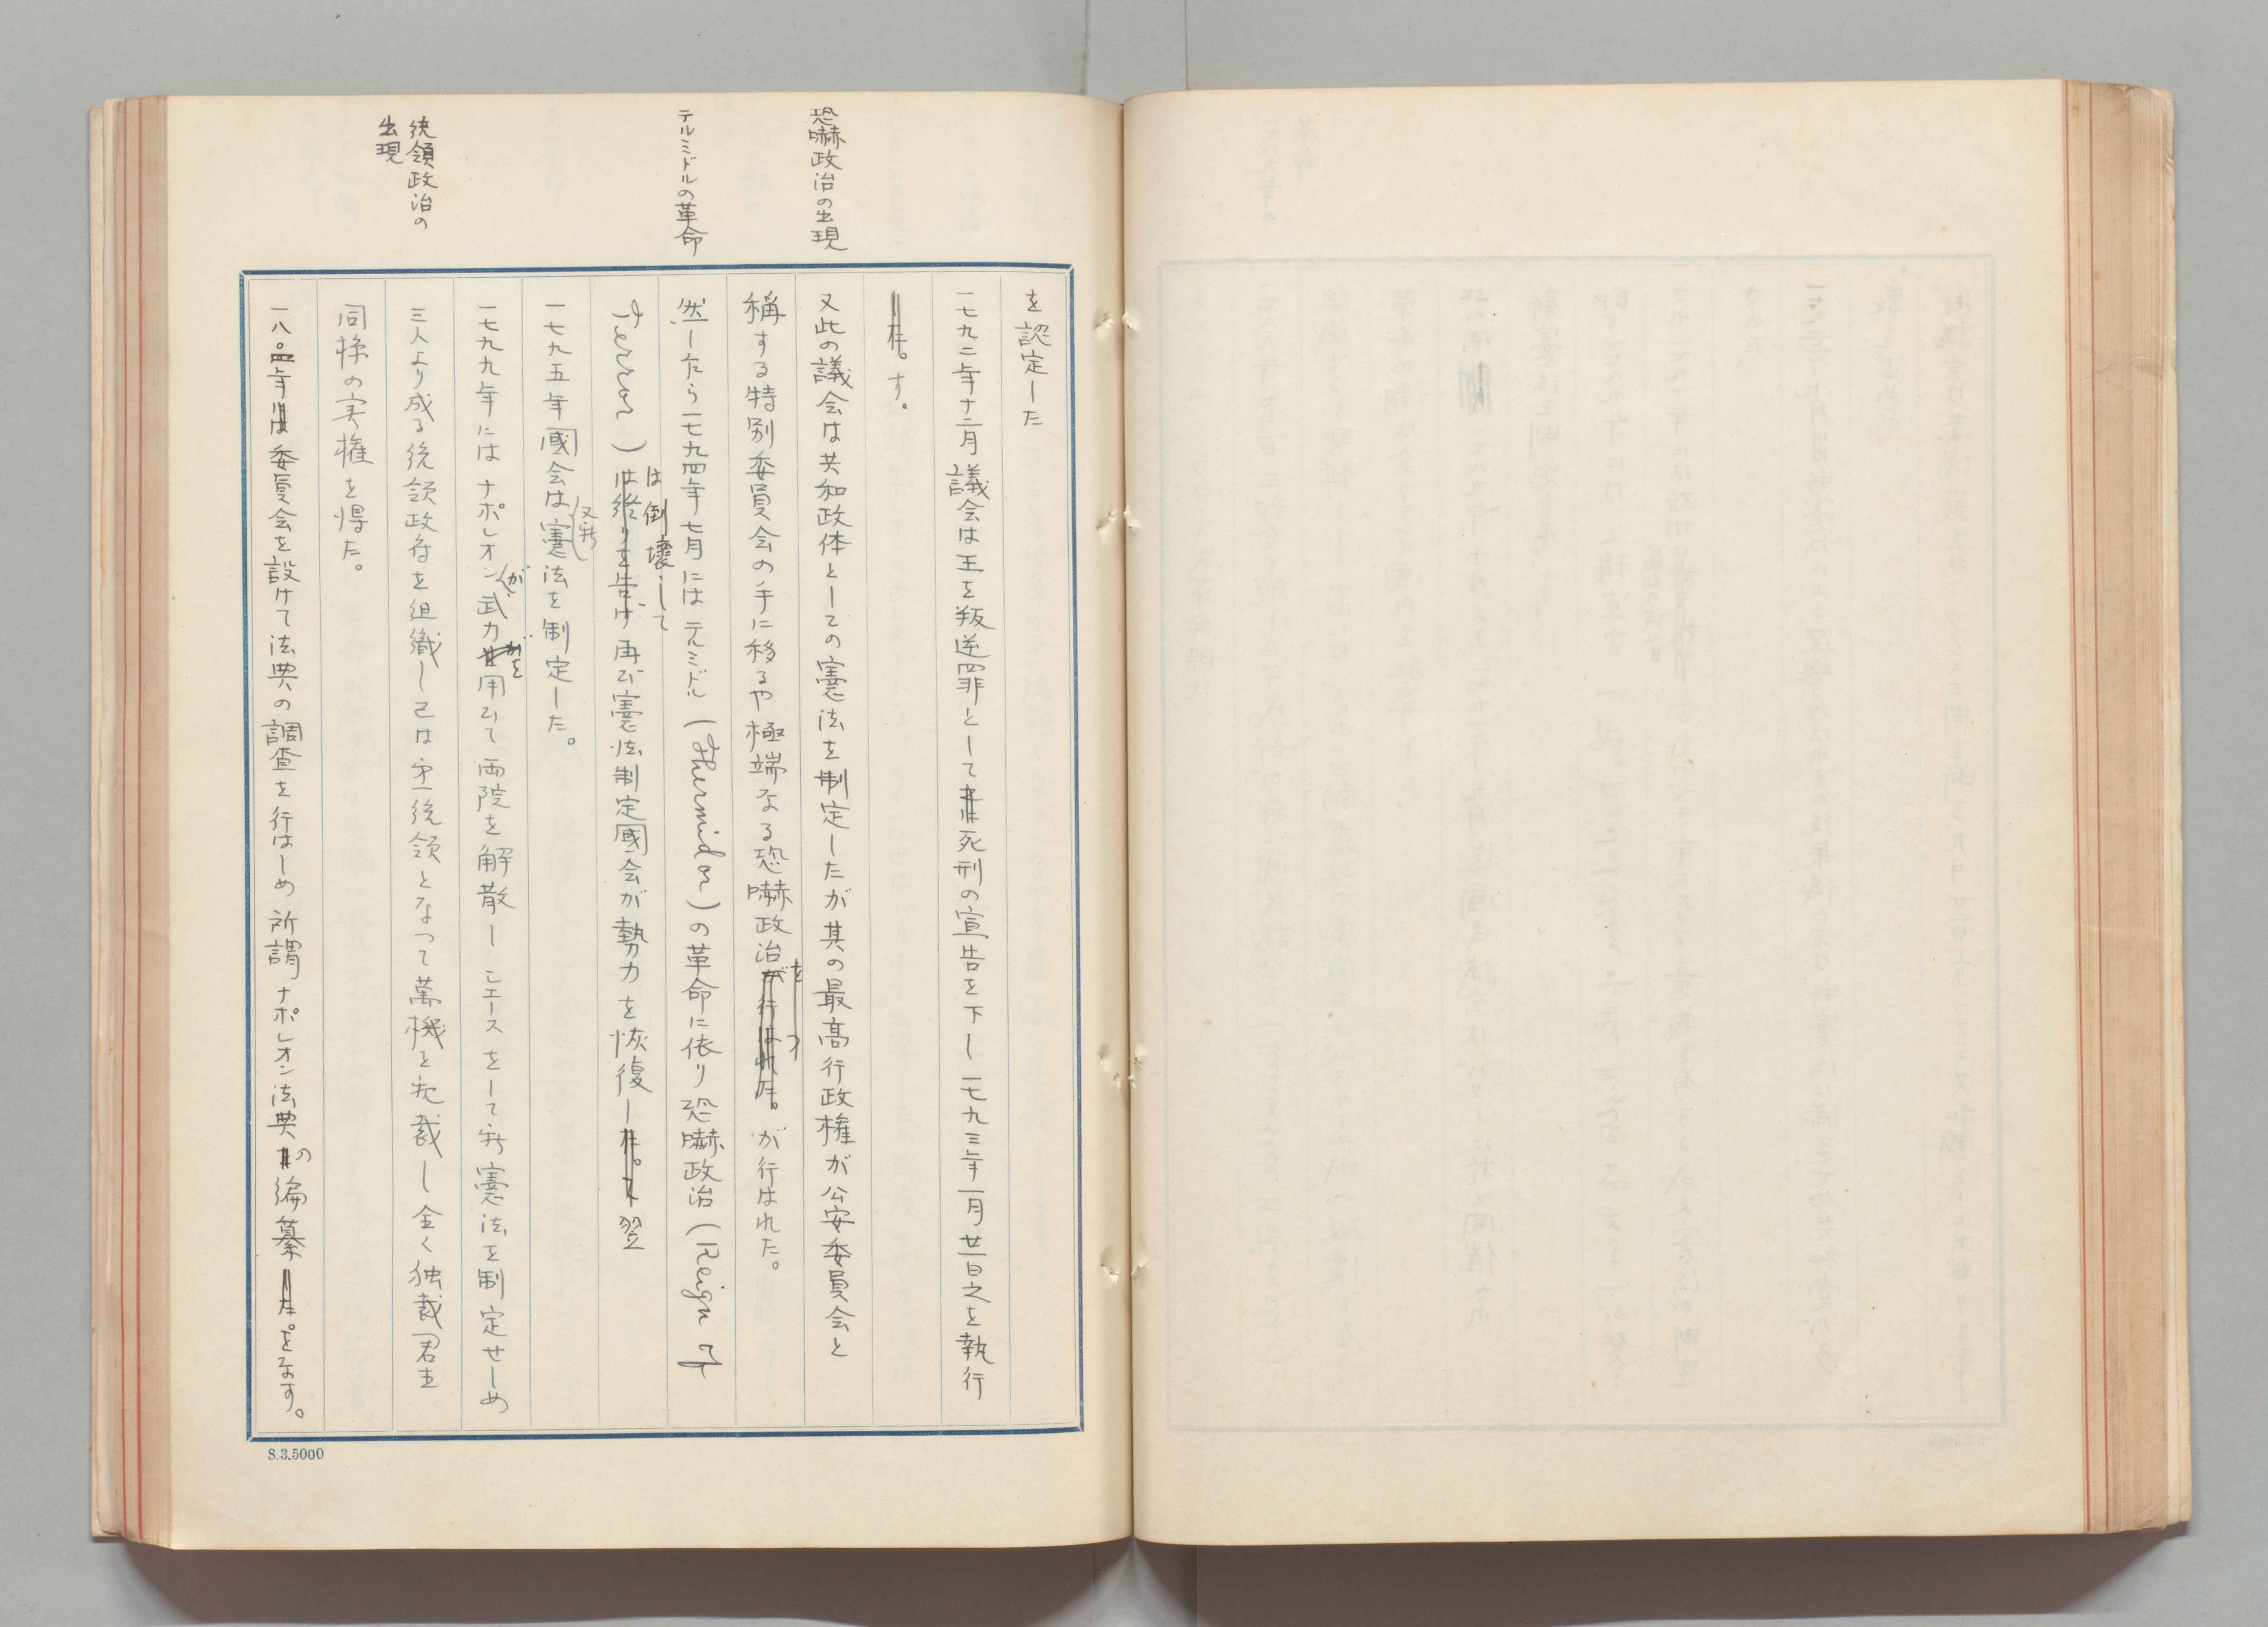 恐嚇政治の出現
テルミドルの革命
統領政治の
出現
を認定した
一七九二年十二月議会は王を叛逆罪として死刑の宣告を下し一七九三年一月廿一日之を執行
す。
又此の議会は共和政体としての憲法を制定したが其の最高行政権が公安委員会と
稱する特別委員会の手に移るや極端なる恐嚇政治が行はれた。
然したら一七九四年七月にはテルミドル(thermidor)の革命に依り恐嚇政治(Reign of
terror)は倒壊して再び憲法制定國会が勢力を恢復し翌
一七九五年國会は又新憲法を制定した。
一七九九年にはナポレオンが武力を用ひて両院を解散しシエースをして新憲法を制定せしめ
三人より成る統領政府を組織し己は第一統領となつて萬機を親裁し全く独裁君主
同様の実権を得た。
一八〇四年委員会を設けて法典の調査を行はしめ所謂ナポレオン法典の編纂をなす。
8.3.5000